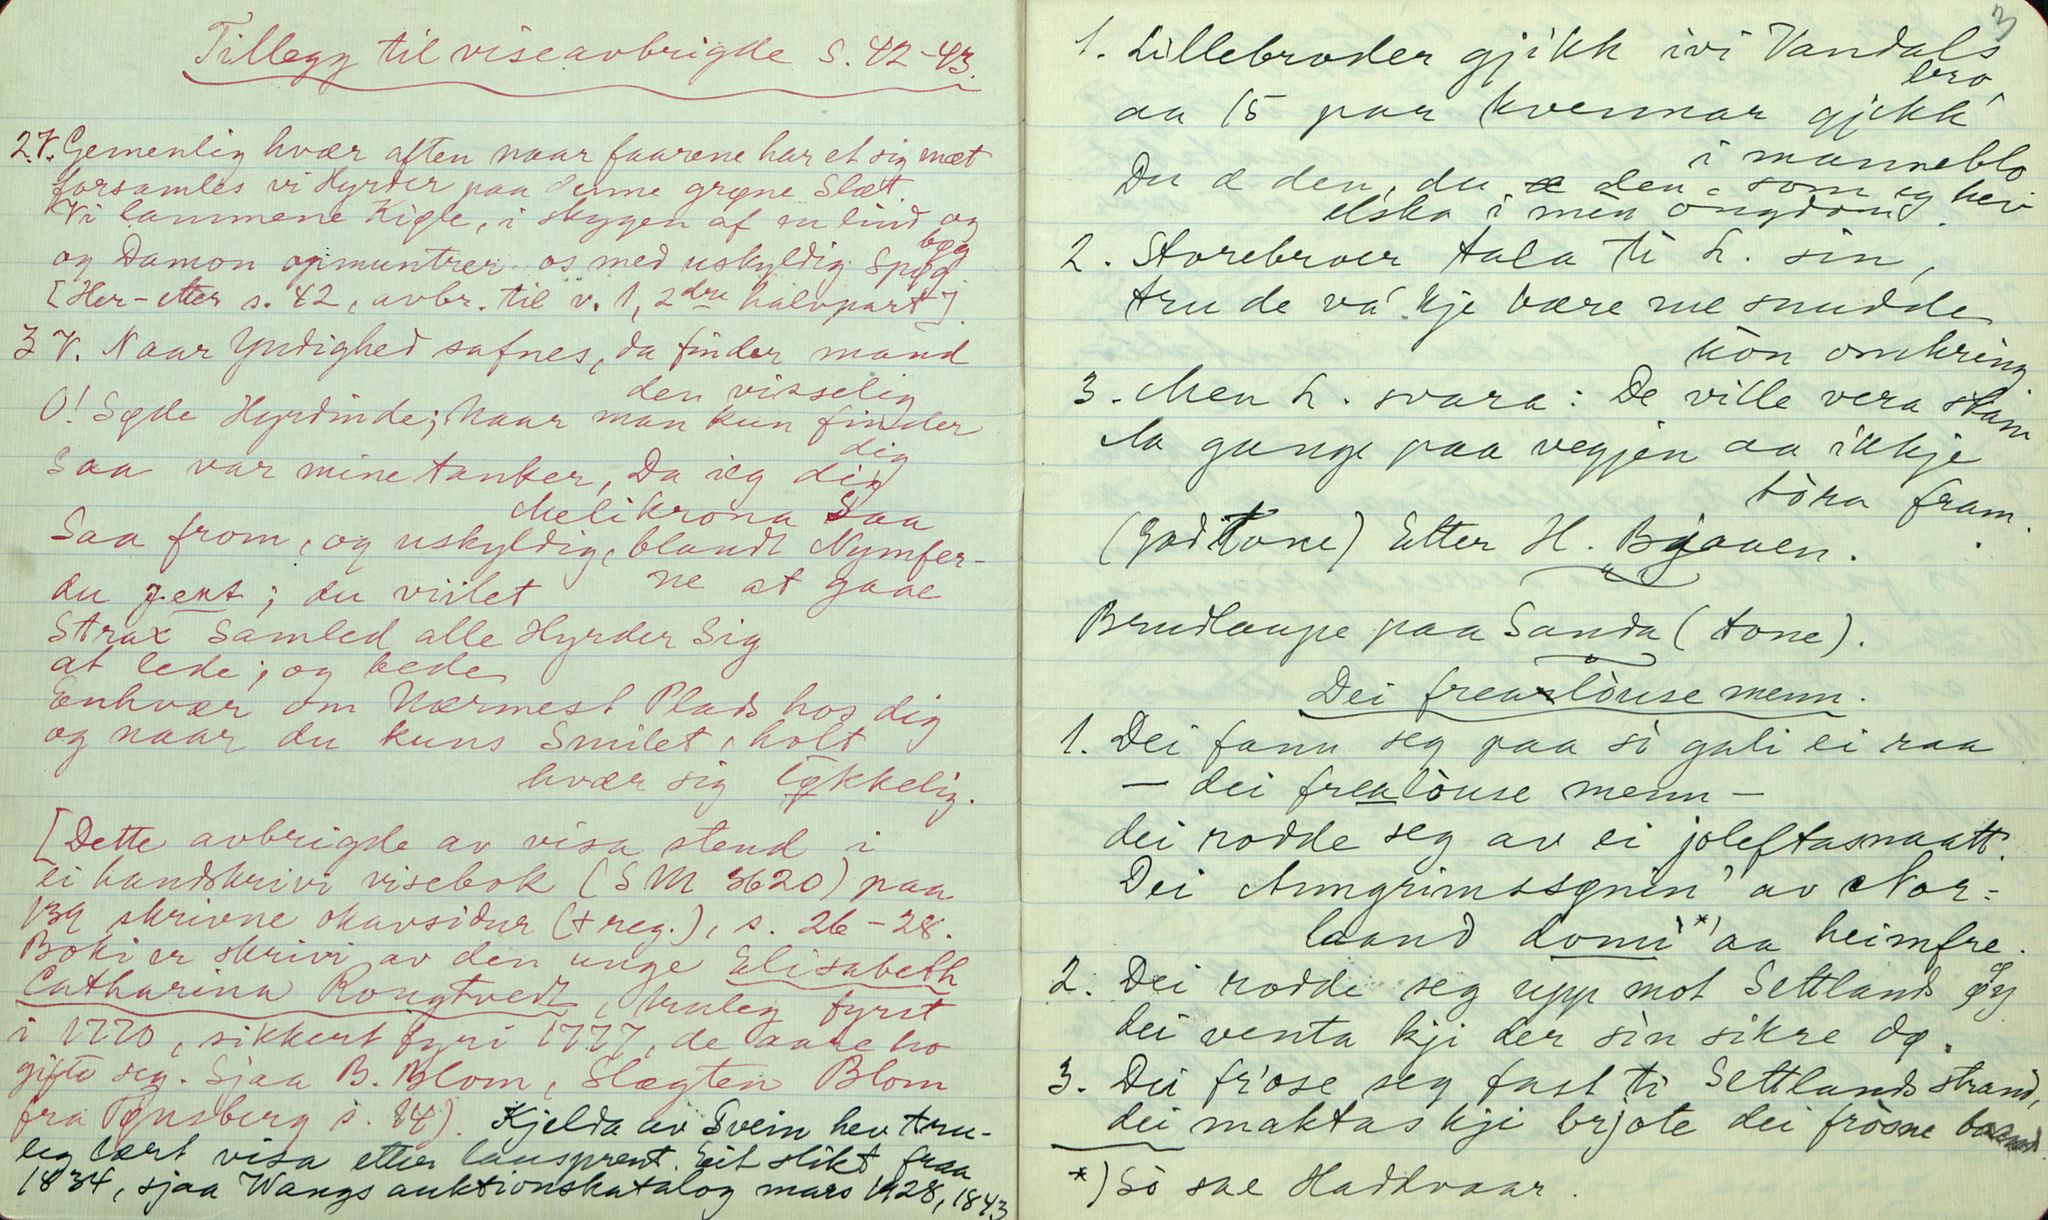 Tillegg til viseavbrigde S. 42-43.
2.V. Gemenlig hvær aften naar faarene har et sig mæt
forsamles vi Hyrder paa denne grøne Slæt.
Vi lammene Kigle, i skygen af en lind og
bøg
og Damon opmuntrer os med uskyldig Spøg
[Her-etter s. 42, avbr. til v. 1, 2dre halvpart].
3 V. Naar Yndighed safnes, da finder mand
den visselig
O! Søde Hyrdinde; Naar man kun finder
dig
Saa var mine tanker, Da ieg dig
Melikrona Saa
Saa from, og uskyldig, blandt Nymfer-
ne at gaae
du gent; du viilet
Strax Samled alle Hyrder Sig
at lede; og bede
Eenhvær om Nærmest Plads hos dig
og naar du kuns Smilet, holt
hvær sig løkkelig.
[Dette avbrigde av visa stend i
ei handskrivi visebok (SM 3620) paa
139 skrivne oktavsidur (+ reg.), s. 26-28.
Boki er skrivi av den unge Elisabeth
Catharina Rougtvedt, truleg fyrst
i 1770, sikkert fyri 1777, de aare ho
gifte seg. Sjaa B. Blom, Slægten Blom
fra Tønsberg s. 84). Kjelda av Svein hev tru-
leg lært visa etter lausprent. Eit slikt fraa
1834, sjaa Wangs auktionskatalog mars 1928, 1843
3
1. Lillebroder gjikk ivi Vandals
bro,
aa 15 par kvennar gjekk
i manneblo
Du æ den, du æ den, som eg hev
elska i min ongdom.
2. Storebroer tala ti L. sin,
tru de va' kje være me snudde
kòn omkring
3. Men L. svara: De ville vera skam
Aa gange paa vegjen aa ikkje
tòra fram.
(God tone) Etter H. Bjaaen.
Brudlaupe paa Sanda (tone).
Dei frealòuse menn.
1. Dei fann seg paa sò gali ei raa
— dei frealòuse menn —
dei rodde seg av ei joleftasnaatt.
Dei Anngrimssønin' av Nor-
laand domi*) aa heimfre.
2. Dei rodde seg upp mot Settlands øy
dei venta kji der sin sikre dø.
3. Dei friose seg fast ti Settlands strand,
dei maktas kji brjote dei fròsne baand.
*) Sò sae Hadkvaar.